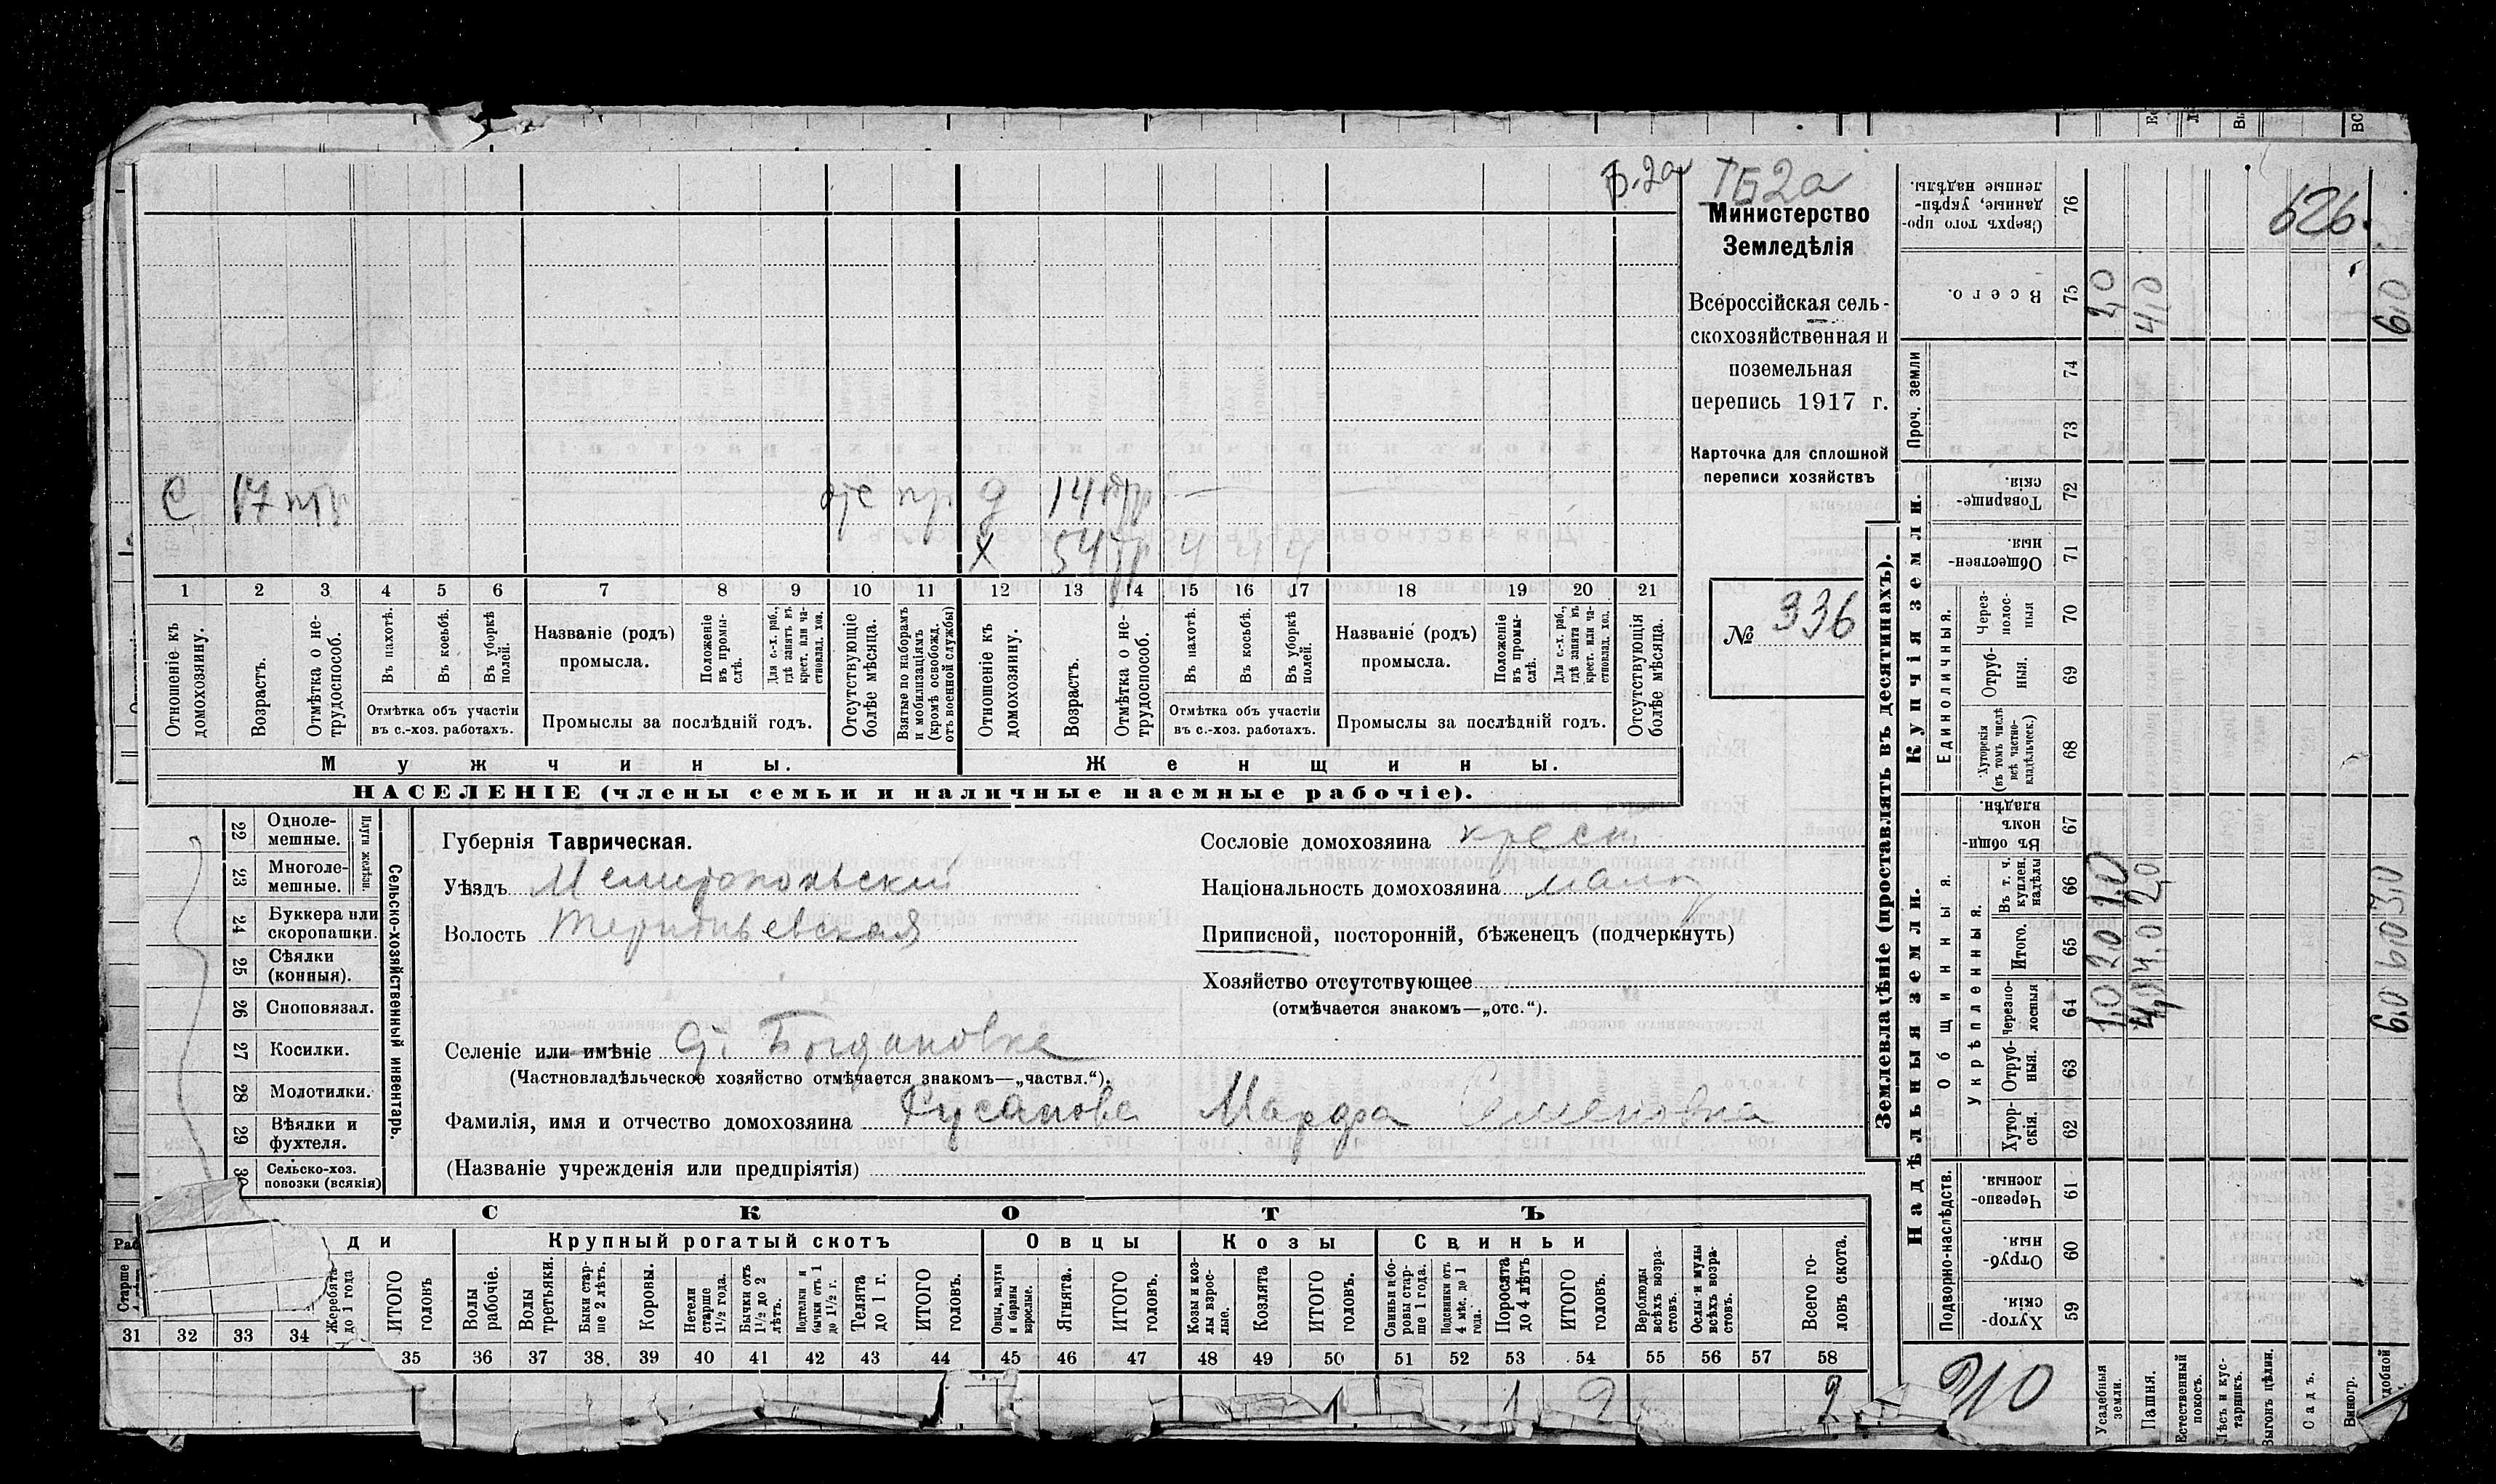 Б.2а
ІБ2а
Министерство
Земледѣлія
Всероссійская сель-
скохозяйственная и
поземельная
перепись 1917 г.
Карточка для сплошной
переписи хозяйствъ
№ 336
С 17
д 14
Х 54
1 2 3 4 5 6 7 8 9 10 11 12 13 14 15 16 17 18 19 20 21
Отношеніе къ домохозяину.
Возрастъ.
Отмѣтка о не-трудоспособ.
Въ пахотѣ.
Въ косьбѣ.
Въ уборкѣ полей.
Отмѣтка объ участіи
въ с.-хоз. работахъ.
Названіе (родъ)
промысла.
Положеніе въ промы-слѣ.
Для с.-х. раб., гдѣ занятъ въ крест. или ча-стновлад. хоз.
Промыслы за послѣдній годъ.
Отсутствующіе болѣе мѣсяца.
Взятые по наборамъ и мобилизаціямъ (кромѣ освобожд. отъ военной службы)
Отношеніе къ домохозяину.
Возрастъ.
Отмѣтка о не-трудоспособ.
Въ пахотѣ.
Въ косьбѣ.
Въ уборкѣ полей.
Отмѣтка объ участіи
въ с.-хоз. работахъ.
Названіе (родъ)
промысла.
Положеніе въ промы-слѣ.
Для с.-х. раб., гдѣ занята въ крест. или ча-стновлад. хоз.
Промыслы за послѣдній годъ.
Отсутствующія болѣе мѣсяца.
Мужчины.
Женщины.
НАСЕЛЕНІЕ (члены семьи и наличные наемные рабочіе).
22 Одноле-мешные.
23 Многоле-мешные.
Плуги желѣзн.
24 Буккера или скоропашки.
25 Сѣялки (конныя).
26 Сноповязал.
27 Косилки.
28 Молотилки.
29 Вѣялки и фухтеля.
30 Сельско-хоз. повозки (всякія)
Сельско-хозяйственный инвентарь.
Губернія Таврическая.
Уѣздъ Мелитопольскій
Волость Терпѣньевская
Селеніе или имѣніе с. Богдановка
(Частновладѣльческое хозяйство отмѣчается знакомъ—„частвл.“).
Фамилія, имя и отчество домохозяина Русанова Марфа Семеновна
(Названіе учрежденія или предпріятія)
Сословіе домохозяина крест.
Національность домохозяина малор
Приписной, посторонній, бѣженецъ (подчеркнуть)
Хозяйство отсутствующее
(отмѣчается знакомъ—„отс.“).
СКОТЪ
ди
Крупный рогатый скотъ
Овцы
Козы
Свиньи
Старше
Жеребята до 1 года
ИТОГО головъ
Волы рабочіе.
Волы третьячки.
Быки стар-ше 2 лѣтъ.
Коровы.
Нетели старше 1½ года.
Бычки отъ 1½ до 2 лѣтъ.
Подтелки и бычки отъ 1 до 1½ г.
Телята до 1 г.
ИТОГО головъ.
Овцы, валухи и бараны взрослые.
Ягнята.
ИТОГО головъ.
Козы и коз-лы взрос-лые.
Козлята
ИТОГО головъ.
Свиньи и бо-ровы стар-ше 1 года.
Подсвинки отъ 4 мѣс. до 1 года.
Поросята до 4 лѣтъ
ИТОГО головъ.
Верблюды всѣхъ возра-стовъ.
Ослы и мулы всѣхъ возра-стовъ.
Всего го-ловъ скота.
31 32 33 34 35 36 37 38 39 40 41 42 43 44 45 46 47 48 49 50 51 52 53 54 55 56 57 58
1 1 2 2
Землевладѣніе (проставлять въ десятинахъ).
Купчія земли.
Надѣльныя земли.
Сверхъ того про-данные, укрѣп-ленные надѣлы. 76
Всего. 75 2,0 4,0 6,0
Проч. земли 74 73
Товарище-скія. 72
Обществен-ныя. 71
Единоличныя.
Через-полос-ныя 70
Отруб-ныя. 69
Хуторскія (въ томъ числѣ всѣ частно-владѣльческ.) 68
Общинныя.
Въ общи-номъ владѣн. 67
Укрѣпленныя.
Въ т. ч. куплен. надѣлы 66 1,0 2,0 3,0
Итого. 65 2,0 4,0 6,0
Черезпо-лосныя 64 1,0 4,0 6,0
Отруб-ныя. 63
Хутор-скія. 62
Подворно-наслѣдств.
Черезпо-лосныя. 61
Отруб-ныя. 60
Хутор-скія. 59
626.
910
Усадебныя земли.
Пашня.
Естественный покосъ.
Лѣсъ и кус-тарникъ.
Выгонъ цѣлин.
Садъ.
Виногр.
удобной